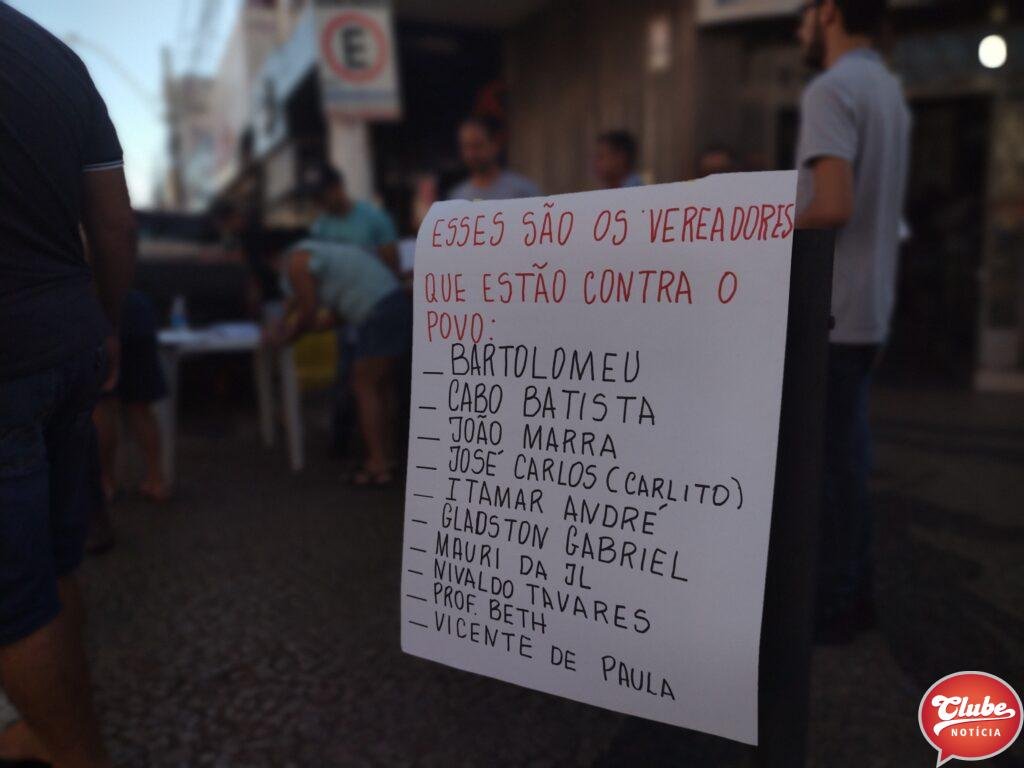 E
ESSES SÃO OS VEREADORES
QUE ESTÃO CONTRA O
POVO:
_ BARTOLOMEU
_ CABO BATISTA
_ JOÃO MARRA
_ JOSÉ CARLOS (CARLITO)
_ ITAMAR ANDRÉ
_ GLADSTON GABRIEL
_ MAURI DA JL
_ NIVALDO TAVARES
_ PROF. BETH
_ VICENTE DE PAULA
Clube
NOTÍCIA